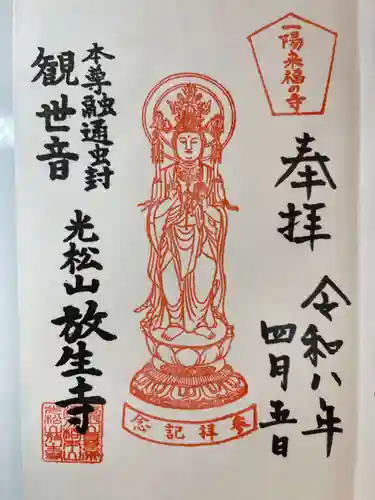 一陽来福の寺
奉拝
令和八年
四月五日
参拝記念
本尊融通虫封
観世音
光松山放生寺